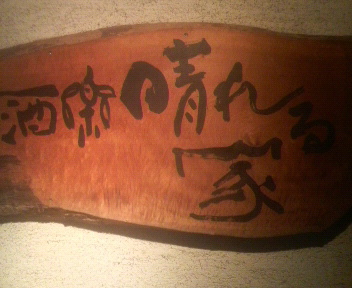 酒楽の晴れる
家